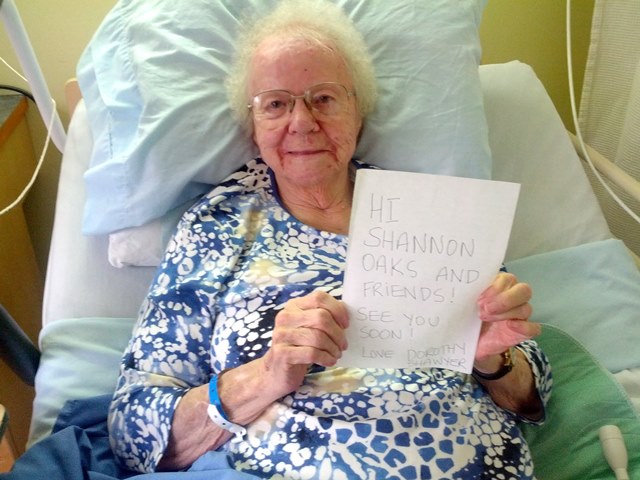 HI
SHANNON
OAKS AND
FRIENDS!
SEE YOU
SOON!
LOVE DOROTHY
SHAWYER